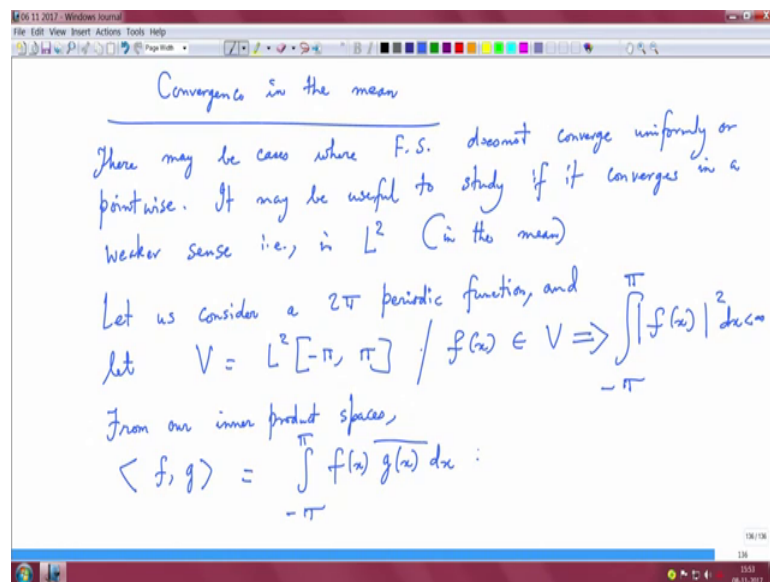 06 11 2017 - Windows Journal
File Edit View Insert Actions Tools Help
Page Width
B I
Convergence in the mean
There may be cases where F.S. doesnot converge uniformly or
pointwise. It may be useful to study if it converges in a
weaker sense i.e., in L² (in the mean)
Let us consider a 2π periodic function, and
let V = L²[-π, π] / f(x) ∈ V ⇒ ∫_{-π}^{π} |f(x)|² dx < ∞
From our inner product spaces,
⟨f, g⟩ = ∫_{-π}^{π} f(x) \overline{g(x)} dx :
136/136
136
15:53
08-11-2017